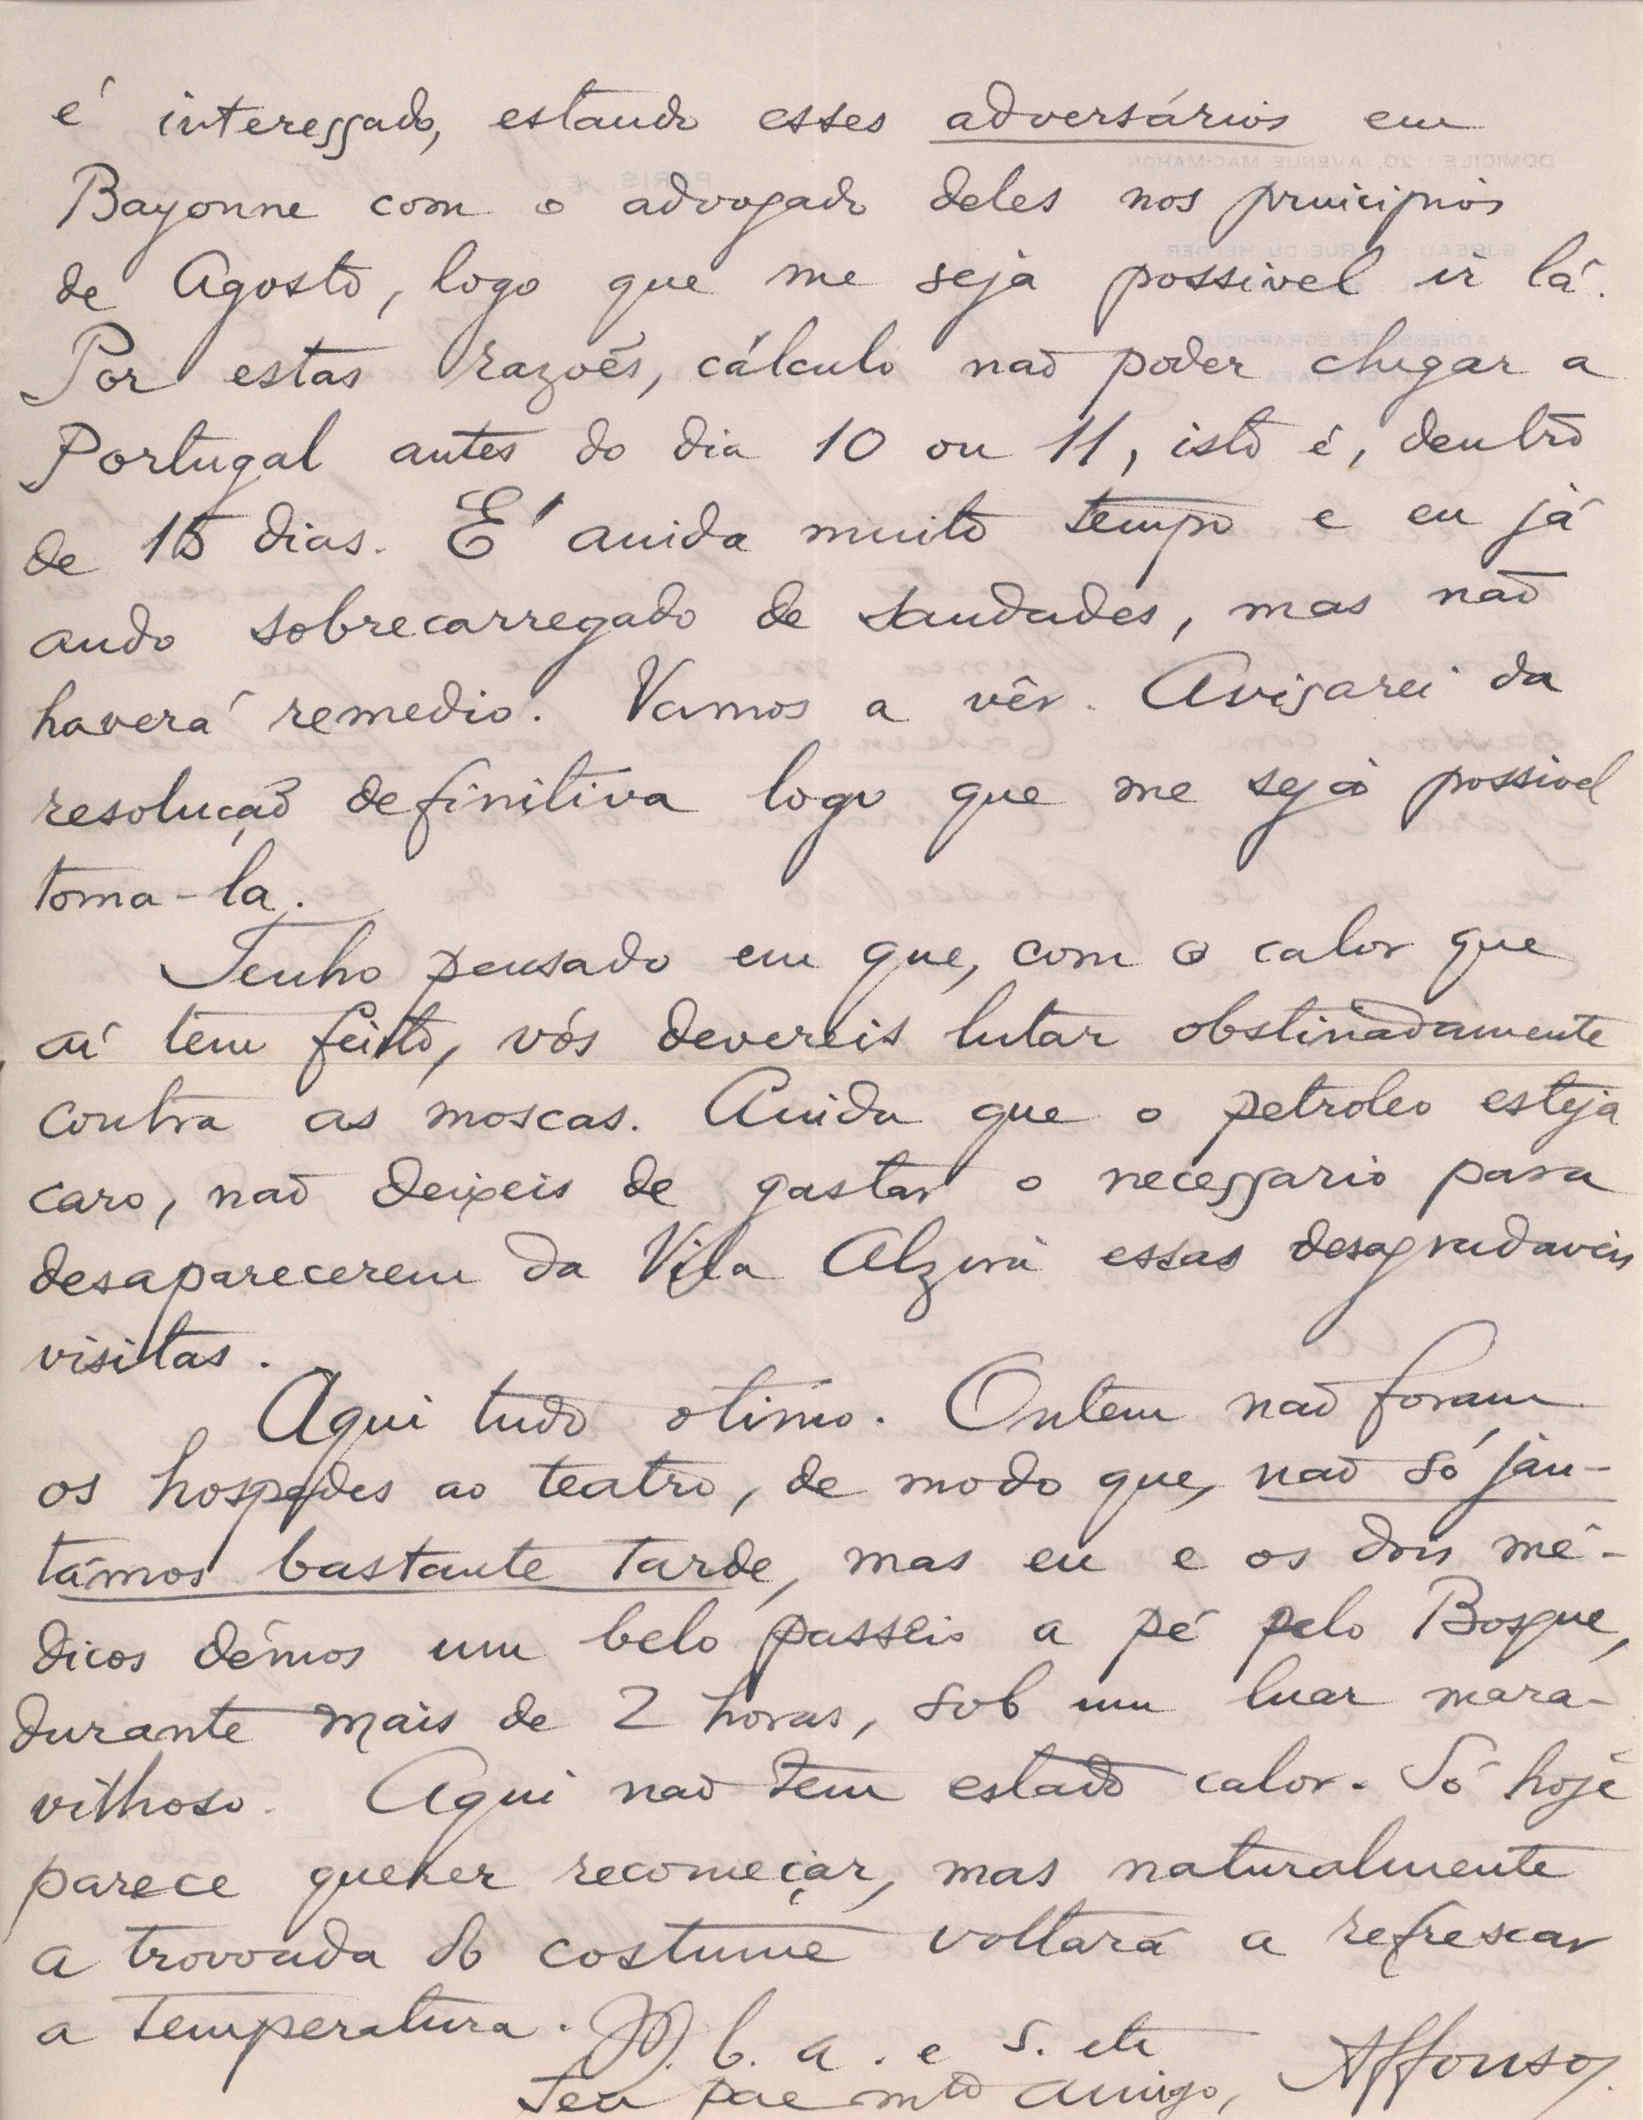 é interessado, estando esses adversários em
Bayonne com o advogado deles nos principios
de Agosto, logo que me seja possivel ir lá.
Por estas razões, cálculo não poder chegar a
Portugal antes do dia 10 ou 11, isto é, dentro
de 15 dias. É ainda muito tempo e eu já
ando sobrecarregado de saudades, mas não
haverá remedio. Vamos a vêr. Avisarei da
resolução definitiva logo que me seja possivel
toma-la.
Tenho pensado em que, com o calor que
aí tem feito, vós devereis lutar obstinadamente
contra as moscas. Ainda que o petroleo esteja
caro, não deixeis de gastar o necessario para
desaparecerem da Vila Alzira essas desagradaveis
visitas.
Aqui tudo otimo. Ontem não foram
os hospedes ao teatro, de modo que, não só jan-
támos bastante tarde, mas eu e os dois mé-
dicos démos um belo passeio a pé pelo Bosque,
durante mais de 2 horas, sob um luar mara-
vilhoso. Aqui não tem estado calor. Só hoje
parece querer recomeçar, mas naturalmente
a trovoada do costume voltará a refrescar
a temperatura. M. b. a. e s. etc
Teu pae mto amigo, Affonso.
DOMICILE : 20, AVENUE MAC-MAHON
PARIS